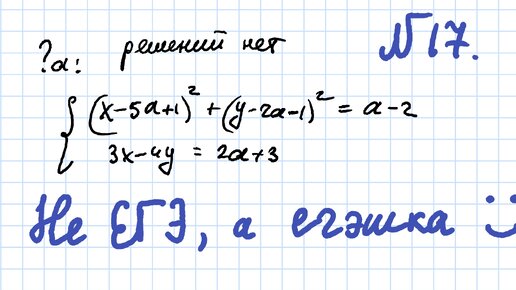 ?a: решений нет
№17.
(x-5a+1)² + (y-2a-1)² = a-2
3x-4y = 2a+3
Не ЕГЭ, а егэшка :)